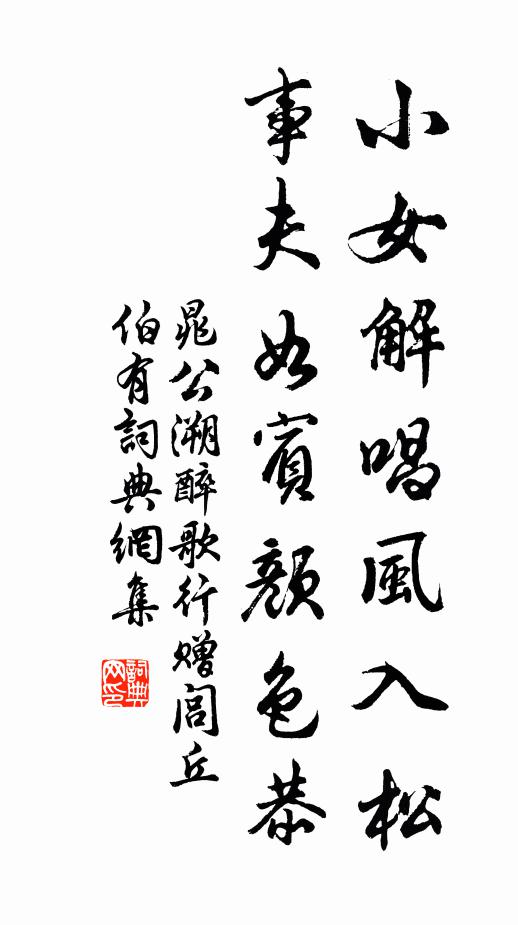 小女解唱風入松
事夫如賓顏色恭
晁公溯醉歌行贈閭丘
伯有詞典網集
詞典
网印